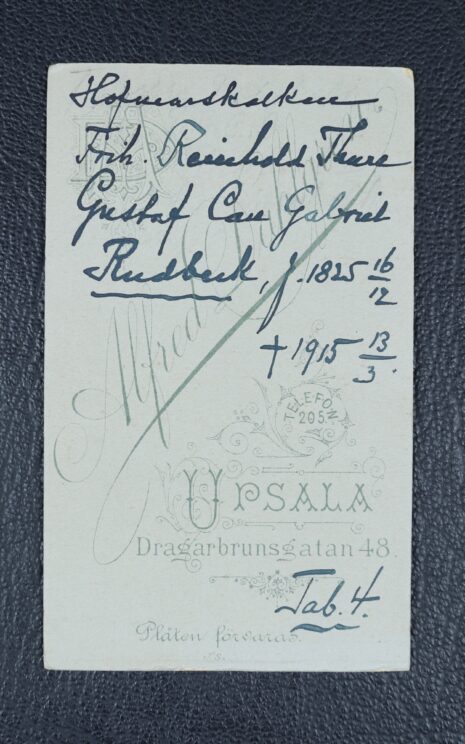 Hofmarskalken
Frih. Reinhold Thure
Gustaf Carl Gabriel
Rudbeck, f. 1825 16/12
† 1915 13/3.
Alfred Dahlgren
TELEFON
205.
UPSALA
Dragarbrunsgatan 48.
Tab. 4.
Plåten förvaras.